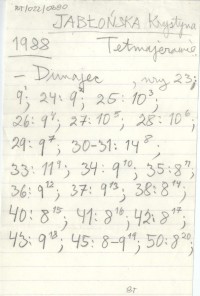 JABŁOŃSKA Krystyna
1988 Tetmajerowie
– Dunajec, nry 23;
9; 24: 9; 25: 10³;
26: 9; 27: 10⁵; 28: 10⁶;
29: 9⁷; 30-31: 14⁸;
33: 11⁹; 34: 9¹⁰; 35: 8¹¹;
36: 9¹²; 37: 9¹³; 38: 8¹⁴;
40: 8¹⁵; 41: 8¹⁶; 42: 8¹⁷;
43: 9¹⁸; 45: 8-9¹⁹; 50: 8²⁰;